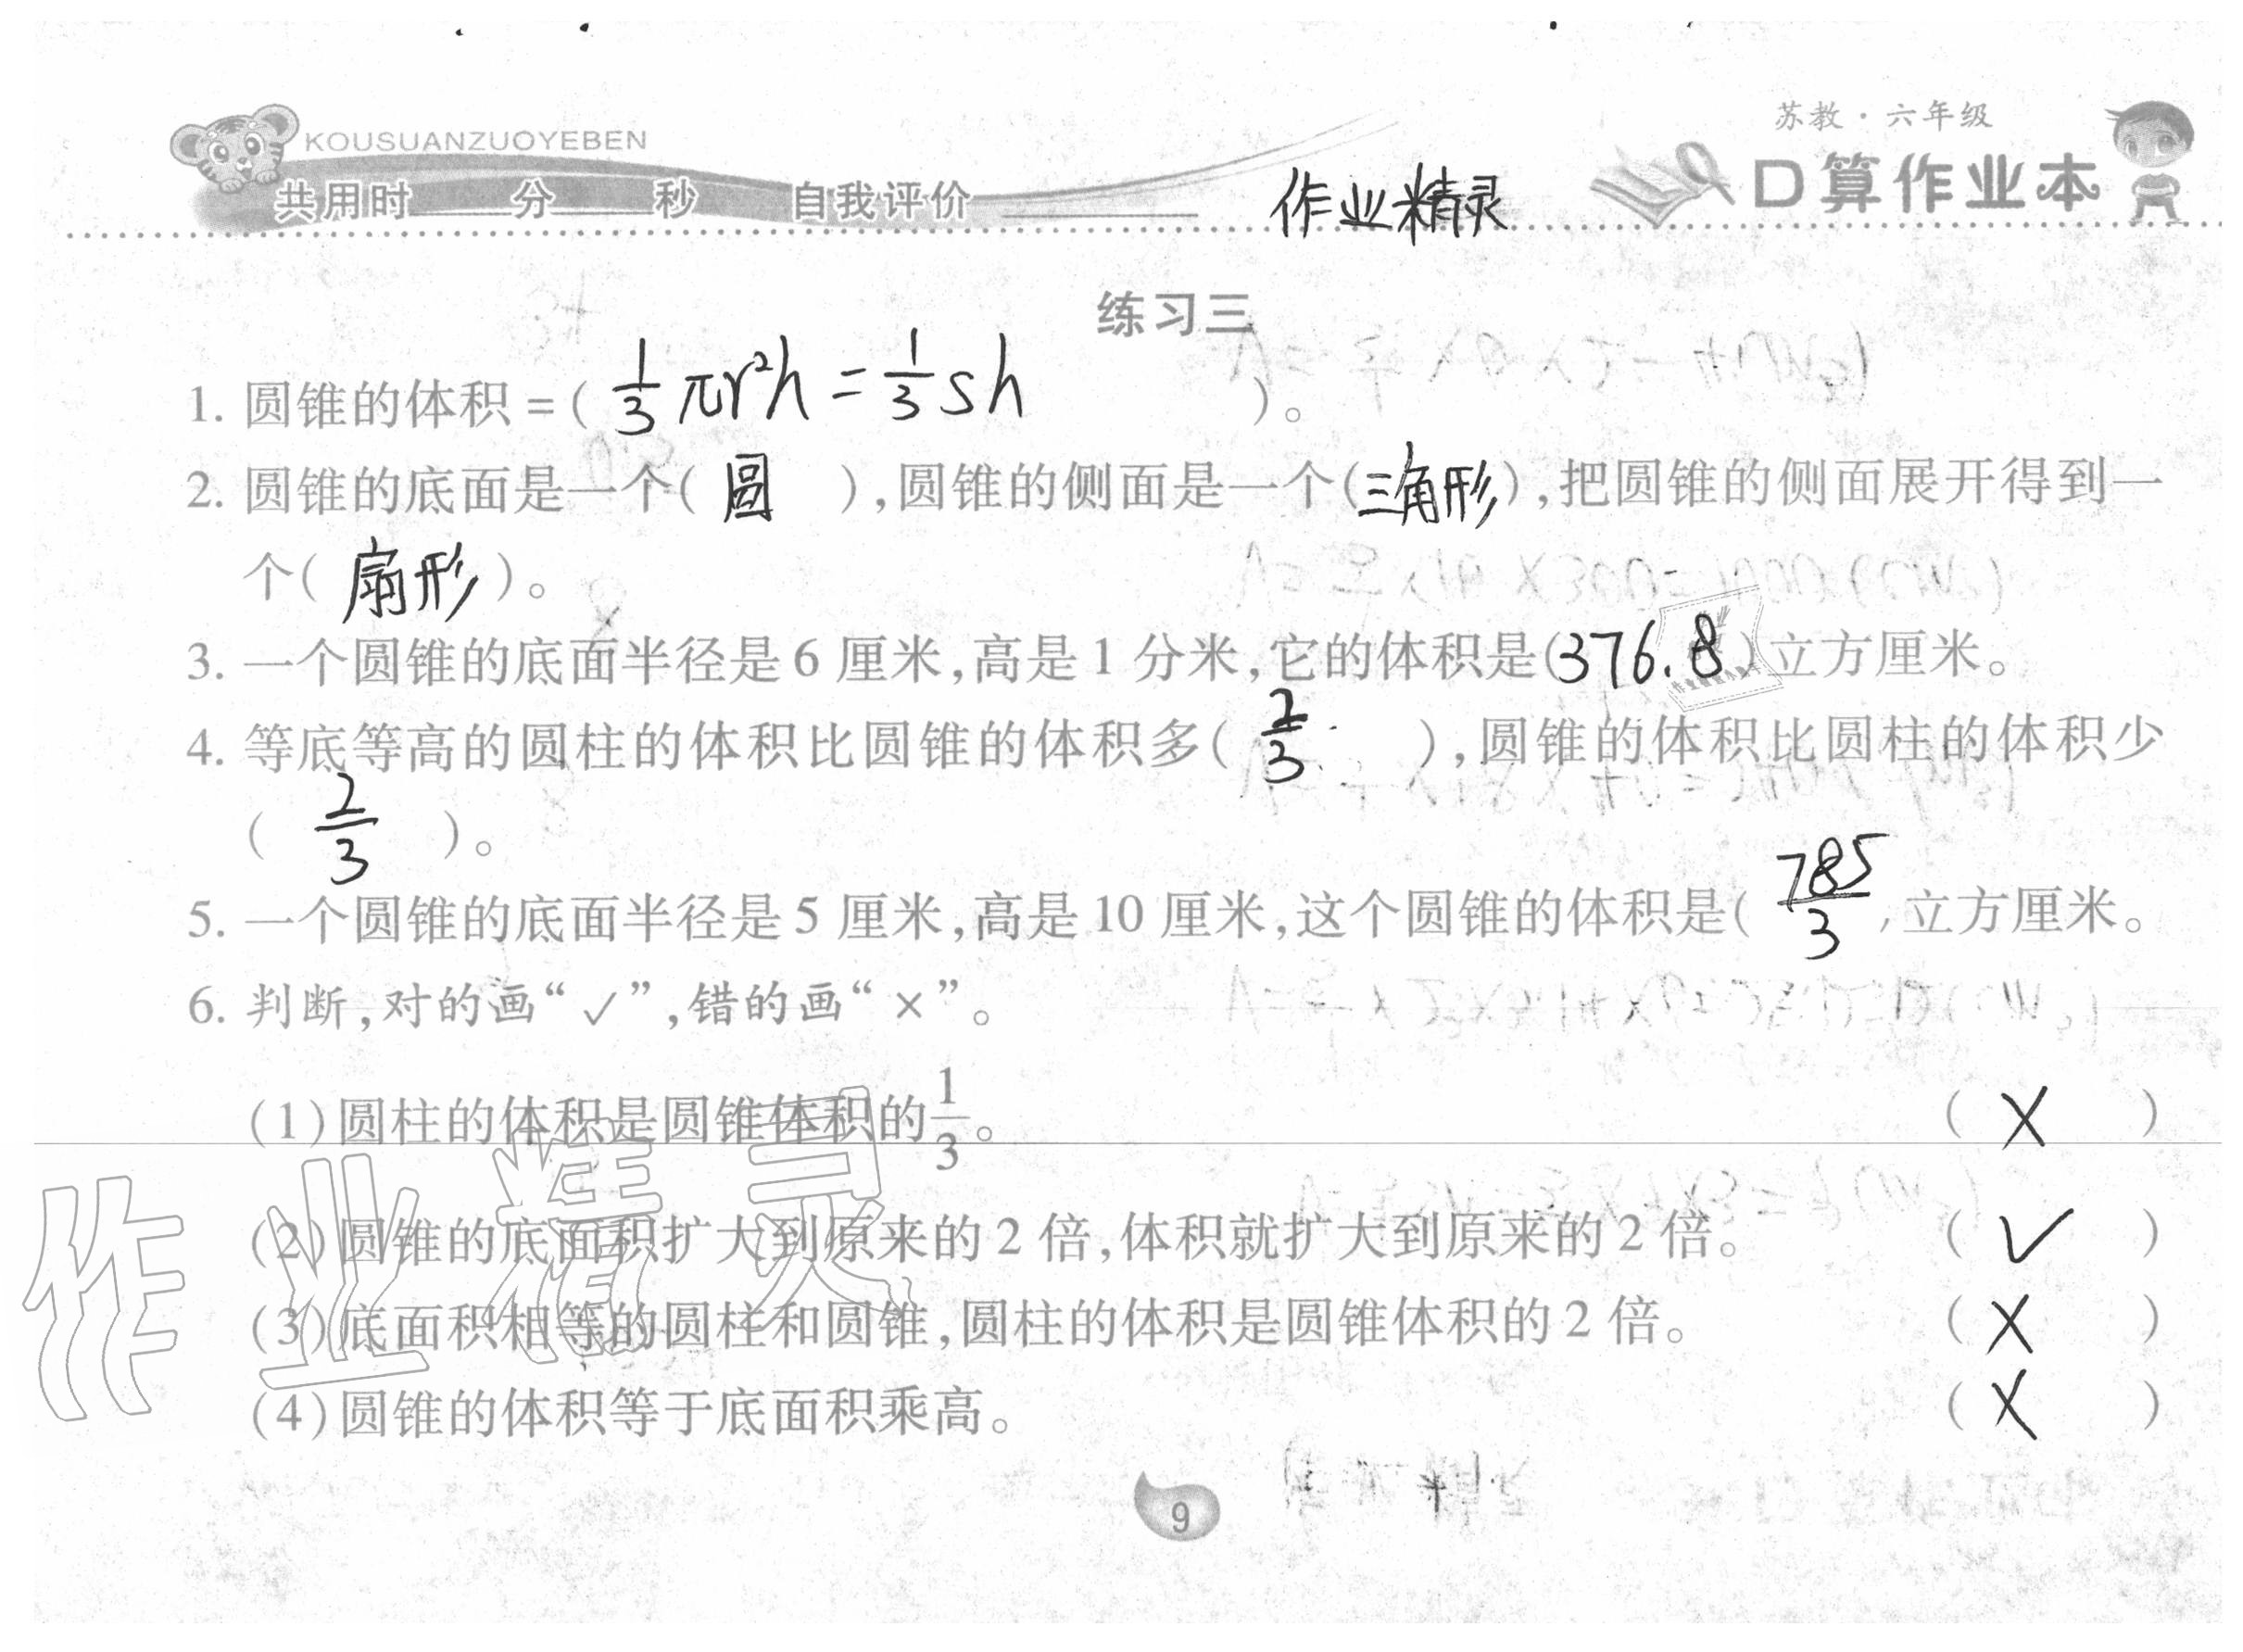 KOUSUANZUOYEBEN
苏教·六年级
共用时____分____秒 自我评价________ 作业精灵 口算作业本
练习三
1. 圆锥的体积=( 1/3 πr²h = 1/3 sh )。
2. 圆锥的底面是一个( 圆 ),圆锥的侧面是一个(三角形),把圆锥的侧面展开得到一
个( 扇形 )。
3. 一个圆锥的底面半径是6厘米,高是1分米,它的体积是(376.8)立方厘米。
4. 等底等高的圆柱的体积比圆锥的体积多( 2/3 ),圆锥的体积比圆柱的体积少
( 2/3 )。
5. 一个圆锥的底面半径是5厘米,高是10厘米,这个圆锥的体积是( 785/3 )立方厘米。
6. 判断,对的画“✓”,错的画“×”。
(1)圆柱的体积是圆锥体积的1/3。 ( × )
(2)圆锥的底面积扩大到原来的2倍,体积就扩大到原来的2倍。 ( ✓ )
(3)底面积相等的圆柱和圆锥,圆柱的体积是圆锥体积的2倍。 ( × )
(4)圆锥的体积等于底面积乘高。 ( × )
作业精灵
9